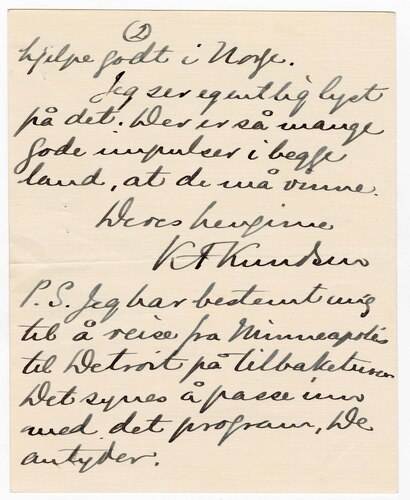 (2)
hjelpe godt i Norge.
Jeg ser egentlig lyst
på det. Der er så mange
gode impulser i begge
land, at de må vinne.
Deres hengivne
KAKnudsen
P.S. Jeg har bestemt mig
til å reise fra Minneapolis
til Detroit på tilbaketuren
Det synes å passe inn
med det program, De
antyder.